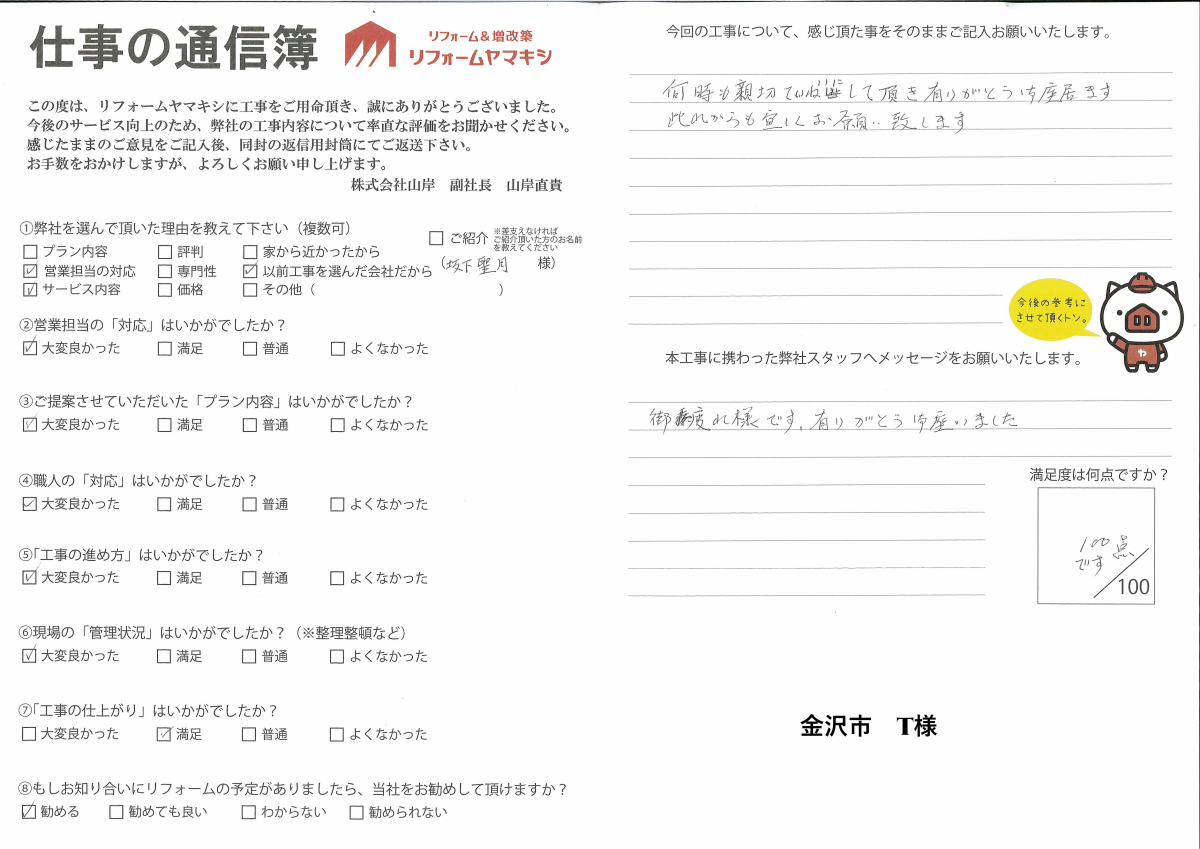 仕事の通信簿
リフォーム&増改築
リフォームヤマキシ
この度は、リフォームヤマキシに工事をご用命頂き、誠にありがとうございました。
今後のサービス向上のため、弊社の工事内容について率直な評価をお聞かせください。
感じたままのご意見をご記入後、同封の返信用封筒にてご返送下さい。
お手数をおかけしますが、よろしくお願い申し上げます。
株式会社山岸　副社長　山岸直貴
①弊社を選んで頂いた理由を教えて下さい（複数可）
□ プラン内容 □ 評判 □ 家から近かったから □ ご紹介 ※差支えなければ
ご紹介頂いた方のお名前
を教えてください
☑ 営業担当の対応 □ 専門性 ☑ 以前工事を選んだ会社だから （坂下 聖月 様）
☑ サービス内容 □ 価格 □ その他（ ）
②営業担当の「対応」はいかがでしたか？
☑ 大変良かった □ 満足 □ 普通 □ よくなかった
③ご提案させていただいた「プラン内容」はいかがでしたか？
☑ 大変良かった □ 満足 □ 普通 □ よくなかった
④職人の「対応」はいかがでしたか？
☑ 大変良かった □ 満足 □ 普通 □ よくなかった
⑤「工事の進め方」はいかがでしたか？
☑ 大変良かった □ 満足 □ 普通 □ よくなかった
⑥現場の「管理状況」はいかがでしたか？（※整理整頓など）
☑ 大変良かった □ 満足 □ 普通 □ よくなかった
⑦「工事の仕上がり」はいかがでしたか？
□ 大変良かった ☑ 満足 □ 普通 □ よくなかった
⑧もしお知り合いにリフォームの予定がありましたら、当社をお勧めして頂けますか？
☑ 勧める □ 勧めても良い □ わからない □ 勧められない
今回の工事について、感じ頂た事をそのままご記入お願いいたします。
何時も親切ていねいにして頂き有りがとう御座居ます
此れからも宜しくお願い致します
今後の参考に
させて頂くトン。
ヤ
本工事に携わった弊社スタッフへメッセージをお願いいたします。
御疲れ様です、有りがとう御座いました
満足度は何点ですか？
100点
です
/100
金沢市　T様